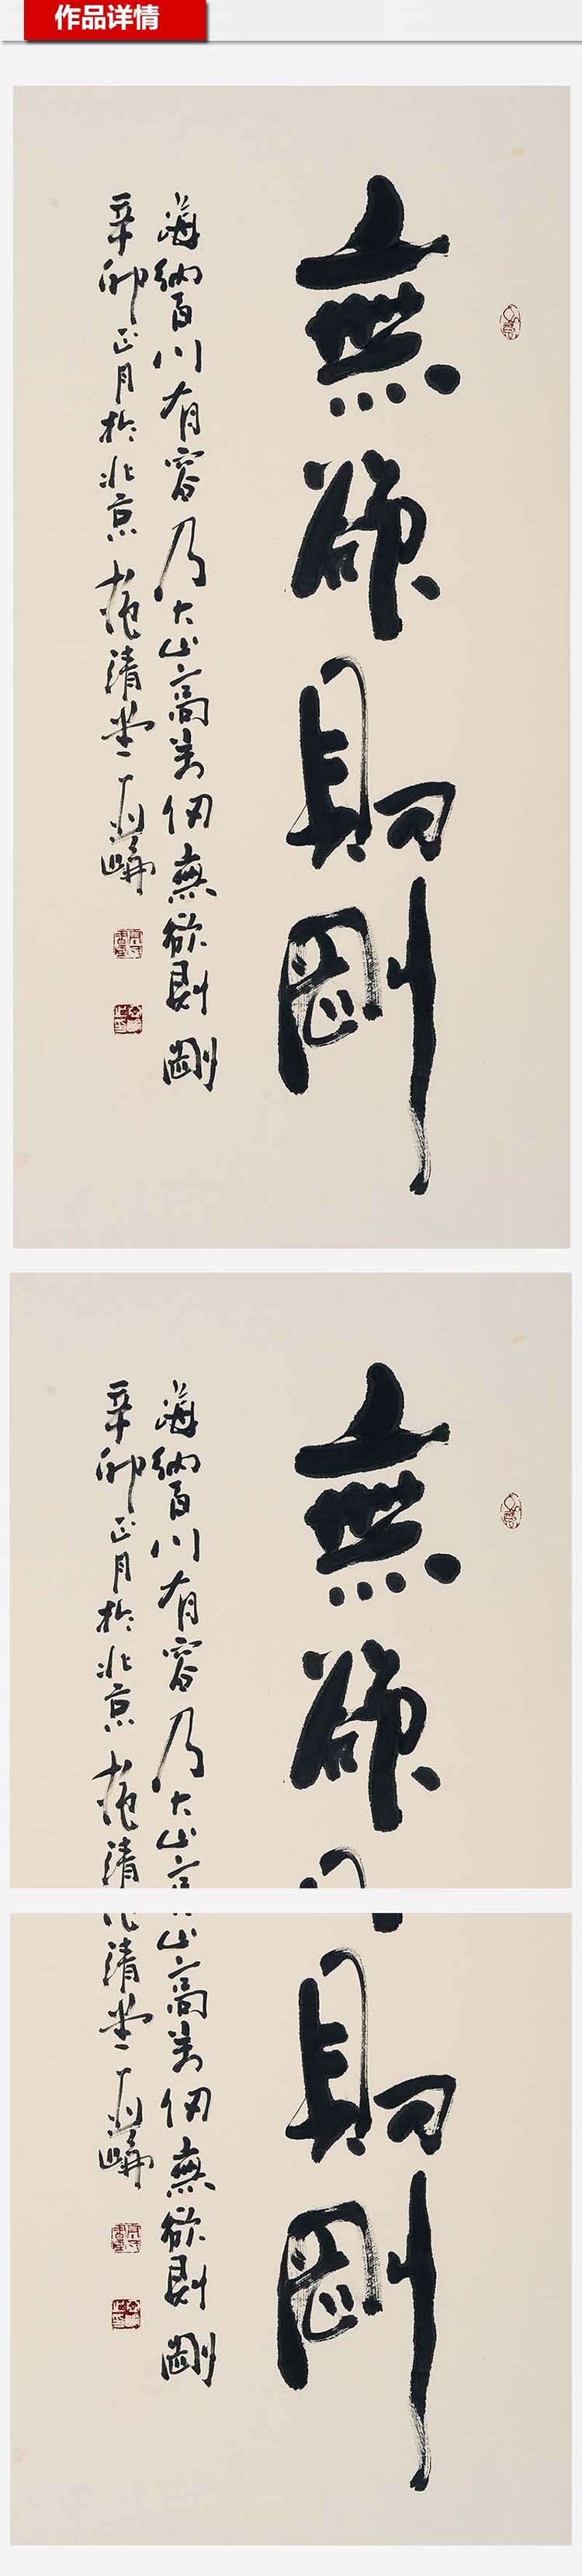 作品详情
無欲則剛
海納百川有容乃大山高萬仞無欲則剛
辛卯正月於北京 清堂
無欲
海納百川有容乃大山
辛卯正月於北京 清
則剛
山高萬仞無欲則剛
清堂